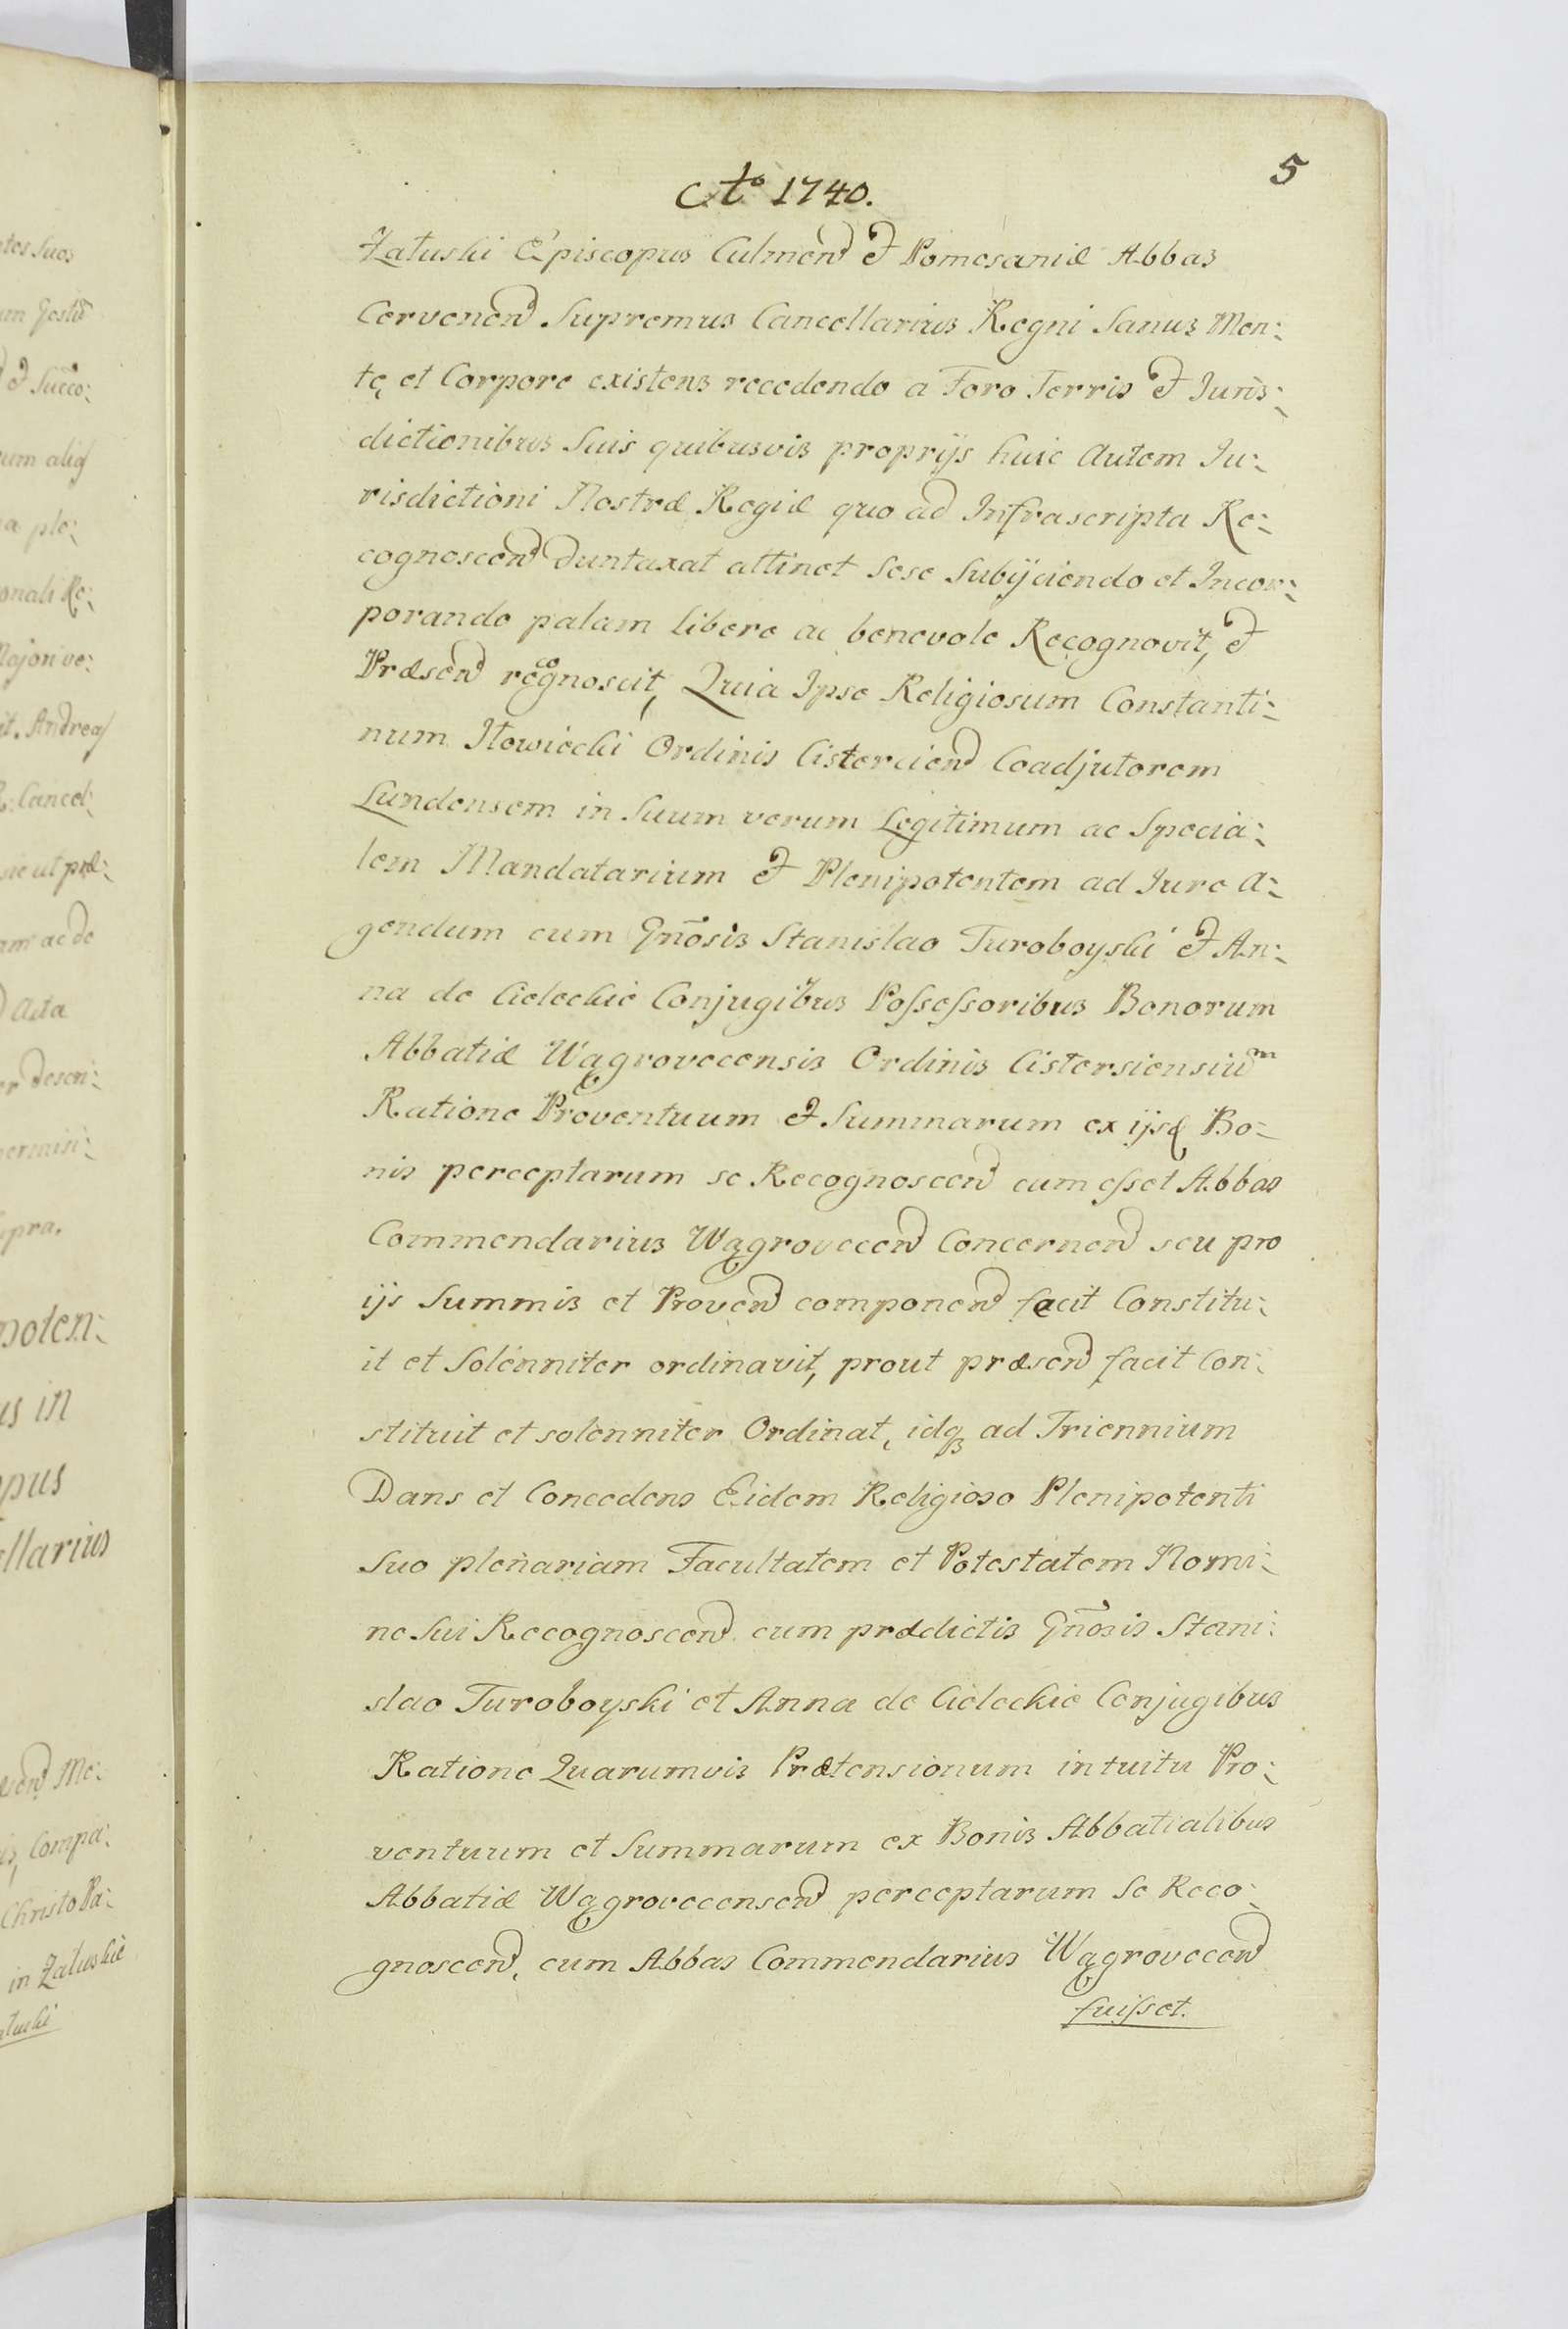 5
Ao 1740.
Załuski Episcopus Culmen et Pomesaniæ Abbas
Cervenen Supremus Cancellarius Regni Sanus Men:
te, et Corpore existens recedendo a Foro Terris et Juris:
dictionibus Suis quibusvis proprijs huic Autem Ju:
risdictioni Nostræ Regiæ quo ad Infrascripta Re:
cognoscen duntaxat attinet sese Subijciendo et Incor:
porando palam libere ac benevole Recognovit, et
Præsen recognoscit, Quia Ipse Religiosum Constanti:
num Iłowiecki Ordinis Cistercien Coadjutorem
Lundensem in Suum verum Legitimum ac Specia:
lem Mandatarium et Plenipotentem ad Jure A:
gendum cum Gnosis Stanislao Turoboyski et An:
na de Cieleckie Conjugibus Possessoribus Bonorum
Abbatiæ Wągrovecensis Ordinis Cistersiensium
Ratione Proventuum et Summarum ex ijsq Bo:
nis perceptarum se Recognoscen cum esset Abbas
Commendarius Wągrovecen Concernen seu pro
ijs Summis et Proven componen fecit Constitu:
it et Solenniter ordinavit, prout præsen facit Con:
stituit et solenniter Ordinat, idq ad Triennium
Dans et Concedens Eidem Religioso Plenipotenti
Suo plenariam Facultatem et Potestatem Nomi:
ne Sui Recognoscen cum prædictis Gnosis Stani:
slao Turoboyski et Anna de Cieleckie Conjugibus
Ratione Quarumvis Prætensionum intuitu Pro:
ventuum et Summarum ex Bonis Abbatialibus
Abbatiæ Wągrovecensen perceptarum Se Reco:
gnoscen, cum Abbas Commendarius Wągrovecen
fuisset.